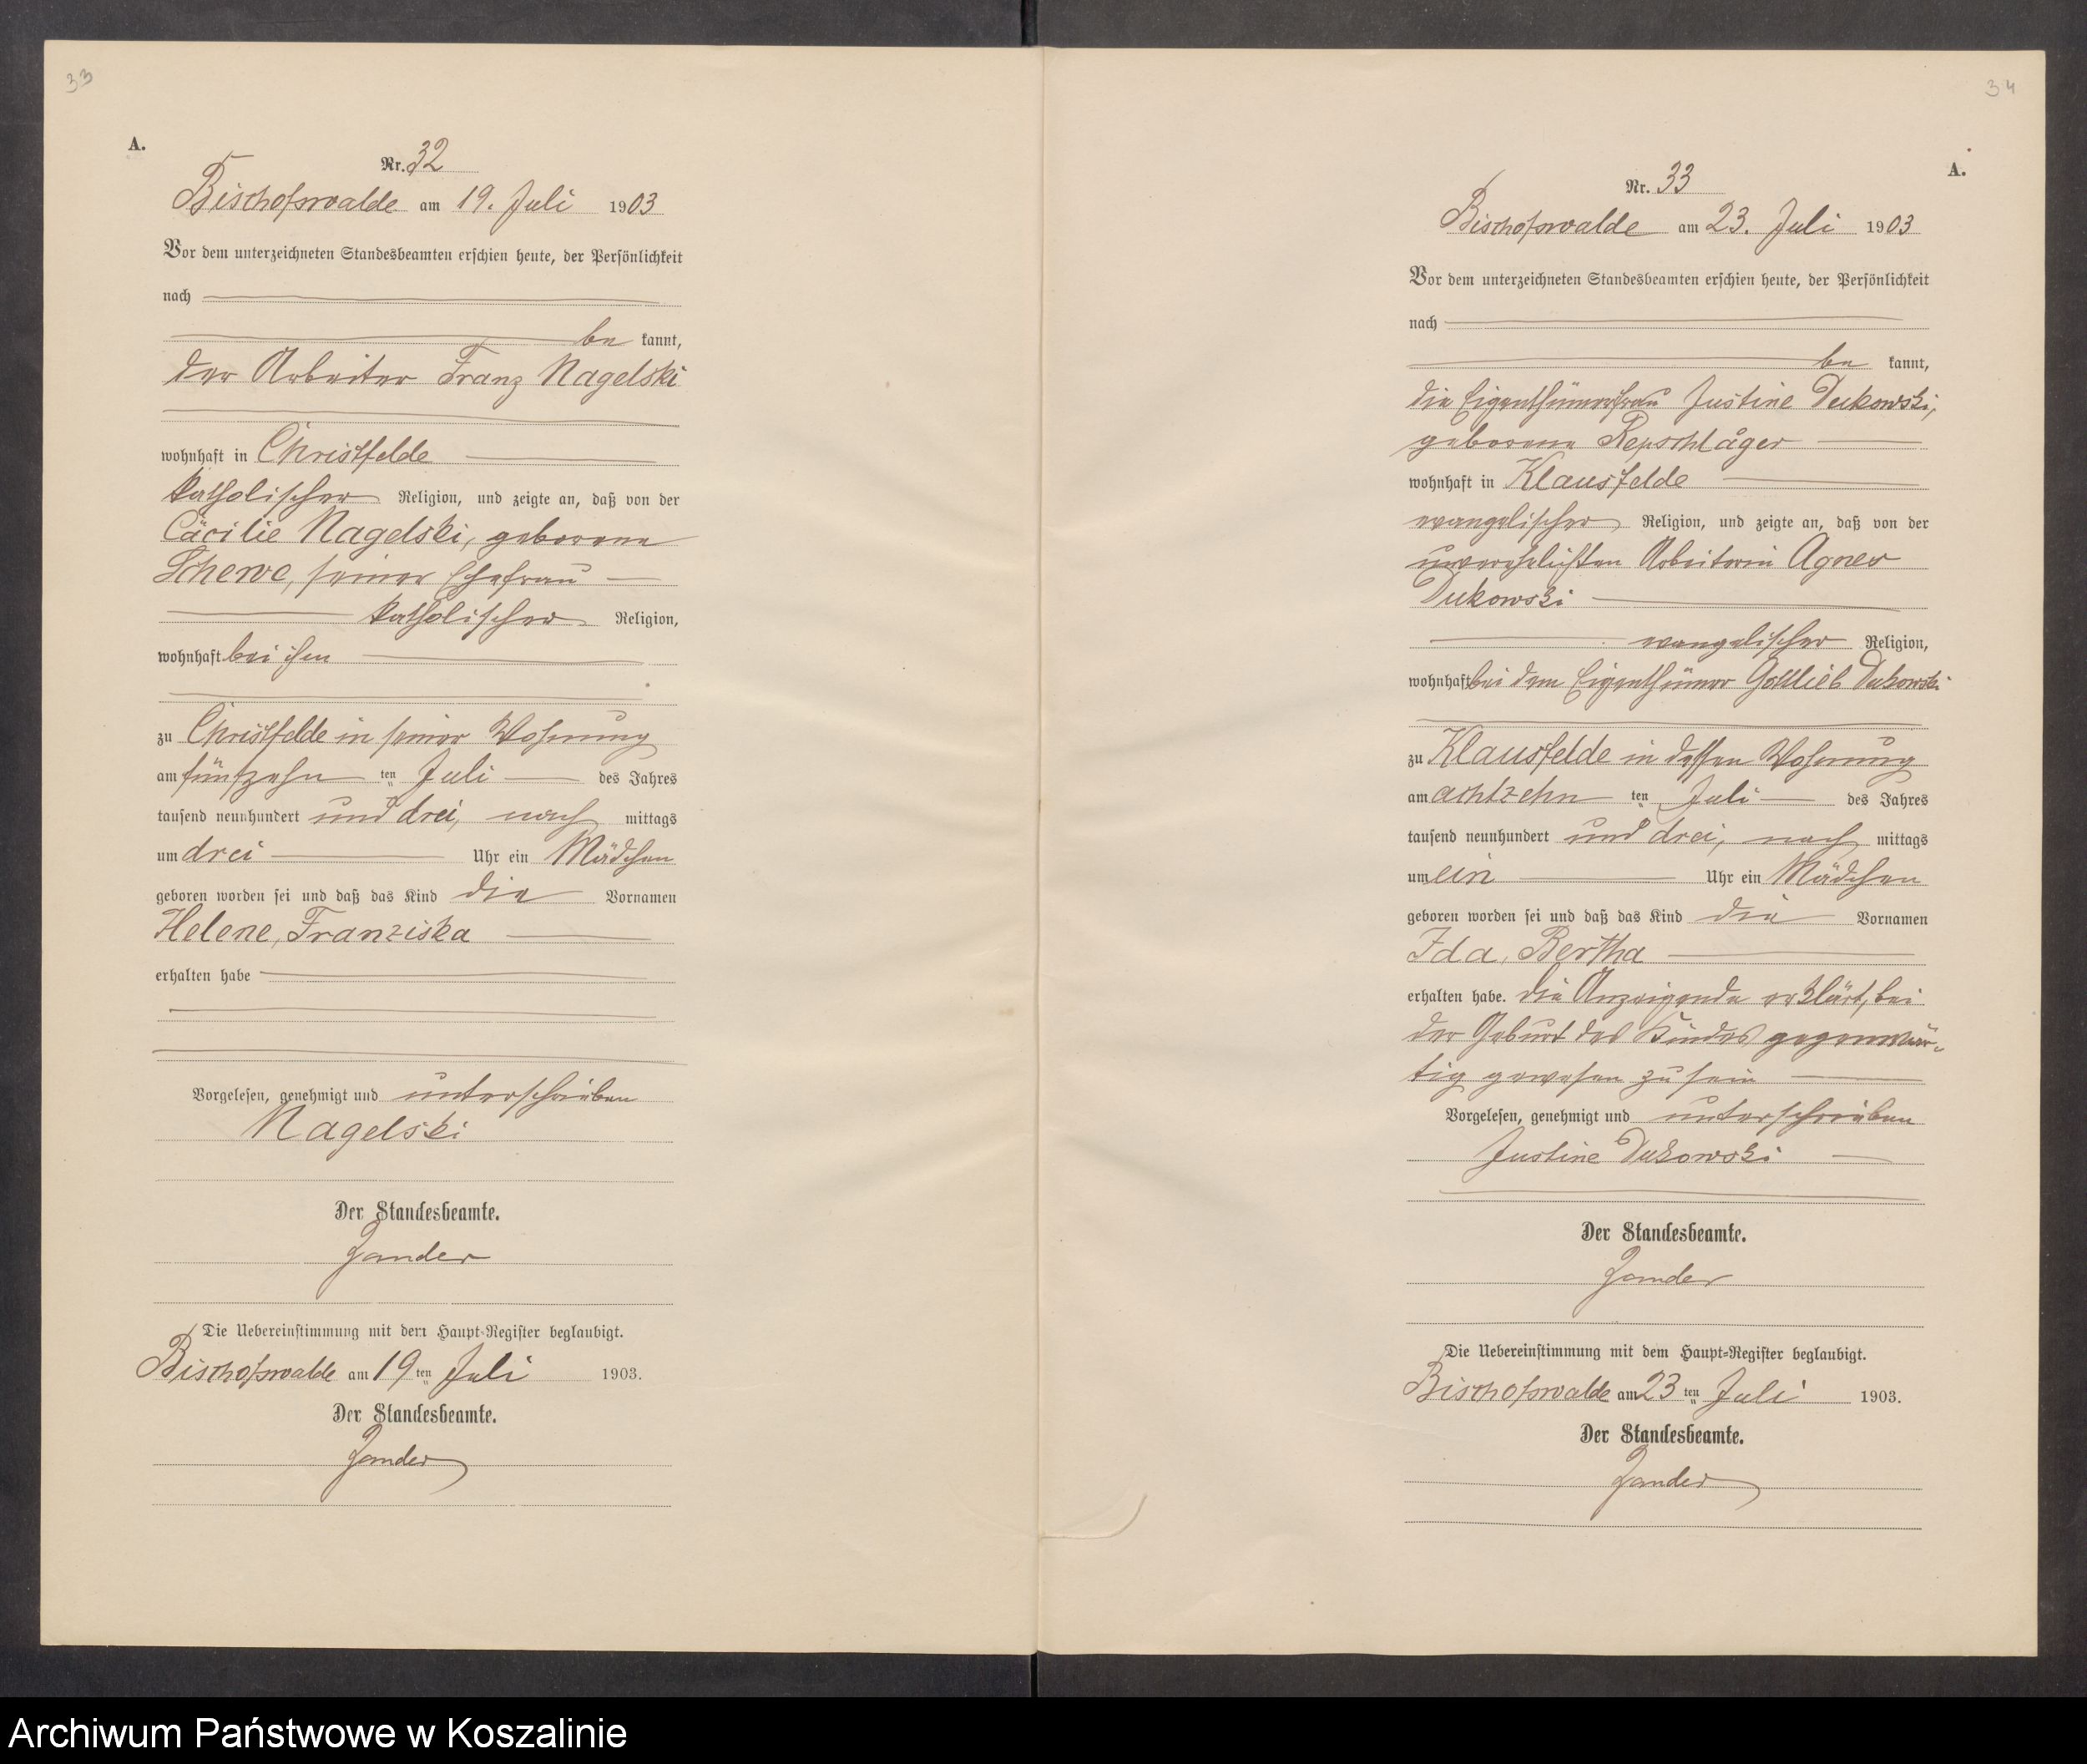 33
A.
Nr. 32
Bischofswalde am 19. Juli 1903
Vor dem unterzeichneten Standesbeamten erschien heute, der Persönlichkeit
nach
be kannt,
der Arbeiter Franz Nagelski
wohnhaft in Christfelde
katholischer Religion, und zeigte an, daß von der
Cäcilie Nagelski, geborene
Schewe, seiner Ehefrau
katholischer Religion,
wohnhaft bei ihm
zu Christfelde in seiner Wohnung
am fünfzehn ten Juli des Jahres
tausend neunhundert und drei, nach mittags
um drei Uhr ein Mädchen
geboren worden sei und daß das Kind die Vornamen
Helene, Franziska
erhalten habe
Vorgelesen, genehmigt und unterschrieben
Nagelski
Der Standesbeamte.
Zander
Die Uebereinstimmung mit dem Haupt-Register beglaubigt.
Bischofswalde am 19 ten Juli 1903.
Der Standesbeamte.
Zander
34
A.
Nr. 33
Bischofswalde am 23. Juli 1903
Vor dem unterzeichneten Standesbeamten erschien heute, der Persönlichkeit
nach
be kannt,
die Eigenthümerfrau Justine Dukowski,
geborene Repschläger
wohnhaft in Klausfelde
evangelischer Religion, und zeigte an, daß von der
unverehelichten Arbeiterin Agnes
Dukowski
evangelischer Religion,
wohnhaft bei dem Eigenthümer Gottlieb Dukowski
zu Klausfelde in dessen Wohnung
am achtzehn ten Juli des Jahres
tausend neunhundert und drei, nach mittags
um ein Uhr ein Mädchen
geboren worden sei und daß das Kind die Vornamen
Ida, Bertha
erhalten habe. Die Anzeigende erklärt, bei
der Geburt des Kindes gegenwär-
tig gewesen zu sein
Vorgelesen, genehmigt und unterschrieben
Justine Dukowski
Der Standesbeamte.
Zander
Die Uebereinstimmung mit dem Haupt-Register beglaubigt.
Bischofswalde am 23 ten Juli 1903.
Der Standesbeamte.
Zander
Archiwum Państwowe w Koszalinie